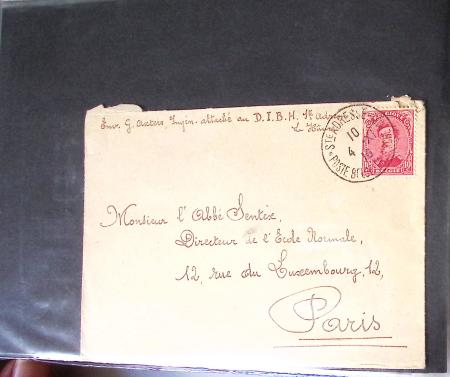 Env. G. attaché au D.I.B.H. Ste
Le
STE ADRESSE
10
4
POSTE BE
10
Monsieur l'Abbé Sentex,
Directeur de l'École Normale,
12, rue du Luxembourg, 12,
Paris